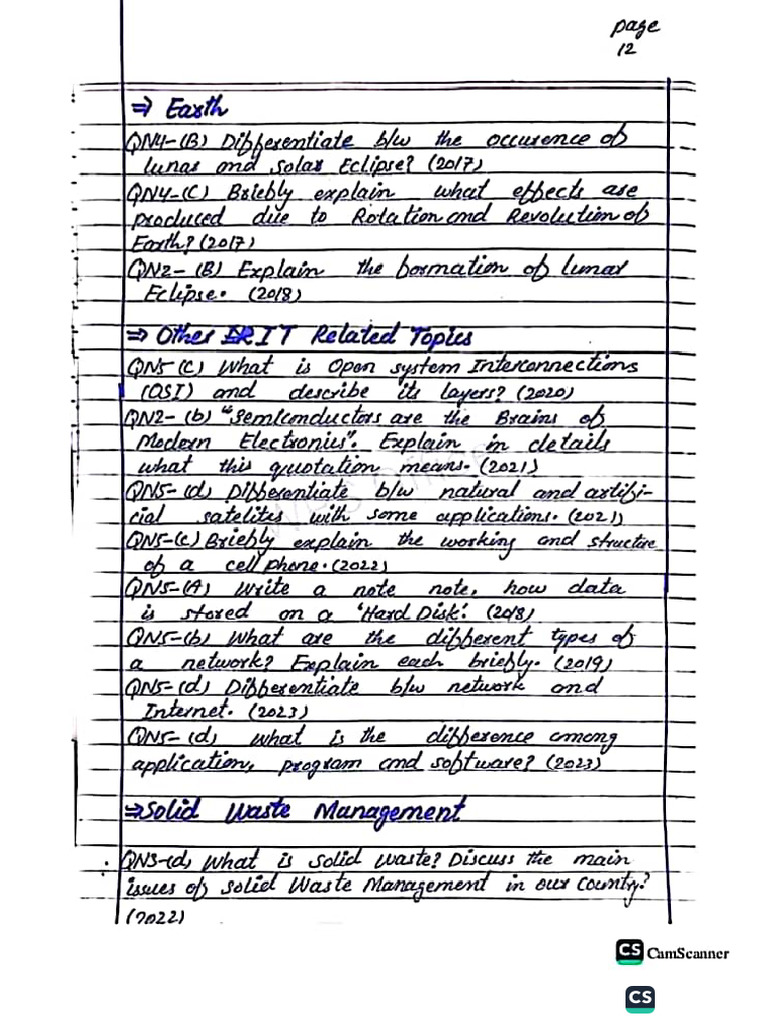 page
12
⇒ Earth
QN4-(B) Differentiate b/w the occurence of
lunar and solar Eclipse? (2017)
QN4-(C) Briefly explain what effects are
produced due to Rotation and Revolution of
Earth? (2017)
QN2-(B) Explain the formation of lunar
Eclipse. (2018)
⇒ Other IT Related Topics
QN5(c) What is Open system Interconnections
(OSI) and describe its layers? (2020)
QN2-(b) "Semiconductors are the Brains of
Modern Electronics". Explain in details
what this quotation means. (2021)
QN5-(d) Differentiate b/w natural and artifi-
cial satelites with some applications. (2021)
QN5-(c) Briefly explain the working and structure
of a cell phone. (2022)
QN5-(A) Write a note note, how data
is stored on a 'Hard Disk'. (2018)
QN5-(b) What are the different types of
a network? Explain each briefly. (2019)
QN5-(d) Differentiate b/w network and
Internet. (2023)
QN5-(d) What is the difference among
application, program and software? (2023)
⇒ Solid Waste Management
QN3-(d) What is solid waste? Discuss the main
issues of Solid Waste Management in our Country?
(2022)
CS CamScanner
CS